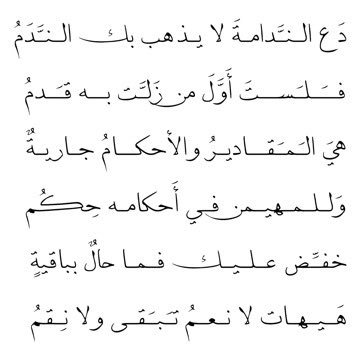 دَع النَّدامةَ لا يذهب بك النَّدَمُ
فَلَستَ أَوَّلَ من زَلَّت به قدمُ
هيَ المَقَاديرُ والأحكامُ جاريةٌ
وَللمهيمن في أَحكامه حِكَم
خفِّض عليك فما حالٌ بباقيةٍ
هَيهات لا نعمُ تَبَقى ولا نِقمُ